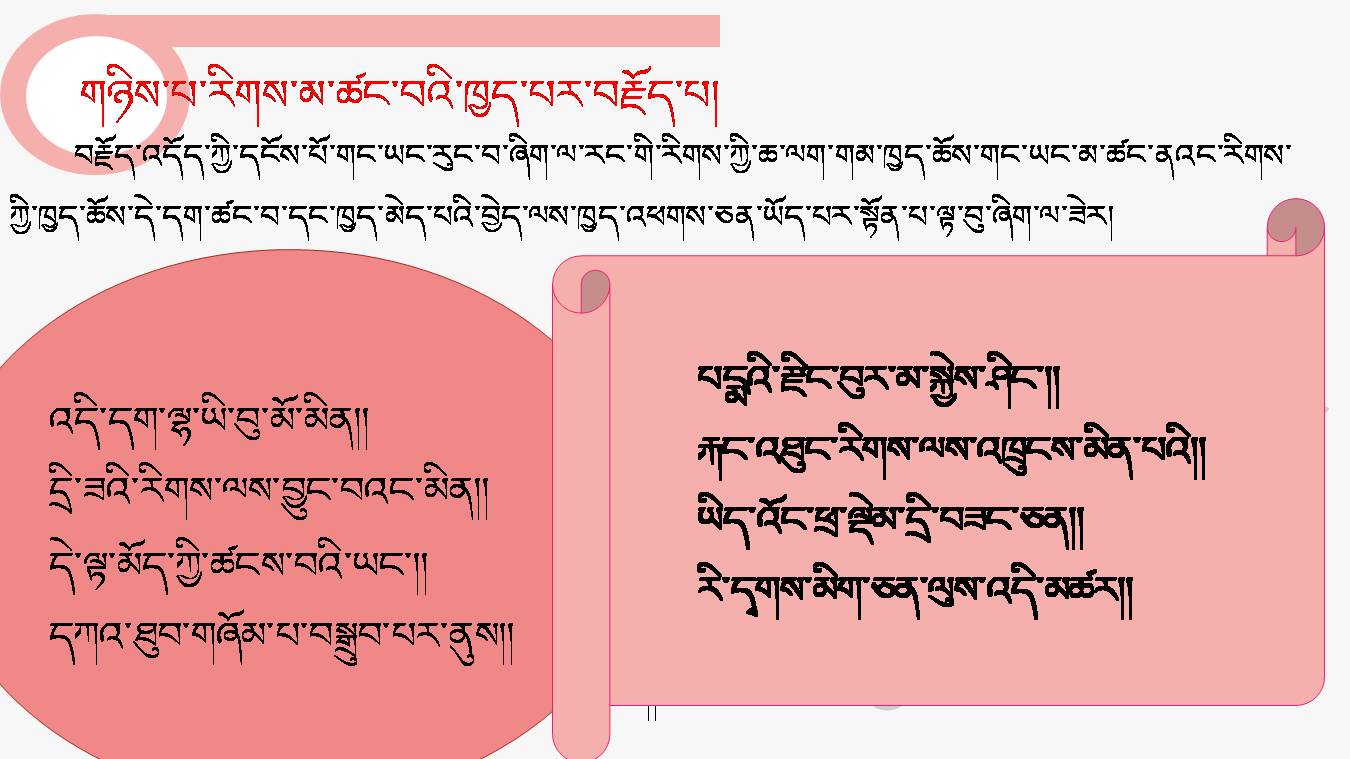 གཉིས་པ་རིགས་མ་ཚང་བའི་ཁྱད་པར་བརྗོད་པ།
བརྗོད་འདོད་ཀྱི་དངོས་པོ་གང་ཡང་རུང་བ་ཞིག་ལ་རང་གི་རིགས་ཀྱི་ཆ་ལག་གམ་ཁྱད་ཆོས་གང་ཡང་མ་ཚང་ནའང་རིགས་
ཀྱི་ཁྱད་ཆོས་དེ་དག་ཚང་བ་དང་ཁྱད་མེད་པའི་བྱེད་ལས་ཁྱད་འཕགས་ཅན་ཡོད་པར་སྟོན་པ་ལྟ་བུ་ཞིག་ལ་ཟེར།
འདི་དག་ལྷ་ཡི་བུ་མོ་མིན༎
དྲི་ཟའི་རིགས་ལས་བྱུང་བའང་མིན༎
དེ་ལྟ་མོད་ཀྱི་ཚངས་བའི་ཡང་༎
དཀའ་ཐུབ་གཞོམ་པ་བསྒྲུབ་པར་ནུས༎
པདྨའི་རྫིང་བུར་མ་སྐྱེས་ཤིང་༎
རྐང་འཐུང་རིགས་ལས་འཁྲུངས་མིན་པའི༎
ཡིད་འོང་ཕྲ་ལྡེམ་དྲི་བཟང་ཅན༎
རི་དྭགས་མིག་ཅན་ལུས་འདི་མཚར༎
༎